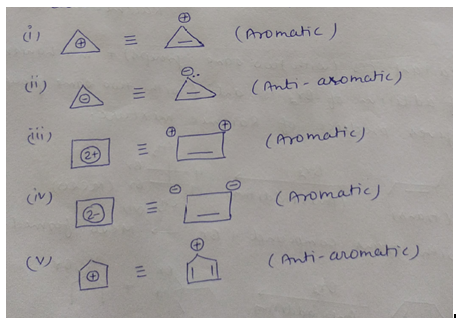 (i) ⊕ ≡ ⊕ (Aromatic)
(ii) ⊖ ≡ ⊖ (Anti-aromatic)
(iii) 2+ ≡ ⊕ ⊕ (Aromatic)
(iv) 2- ≡ ⊖ ⊖ (Aromatic)
(v) ⊕ ≡ ⊕ (Anti-aromatic)